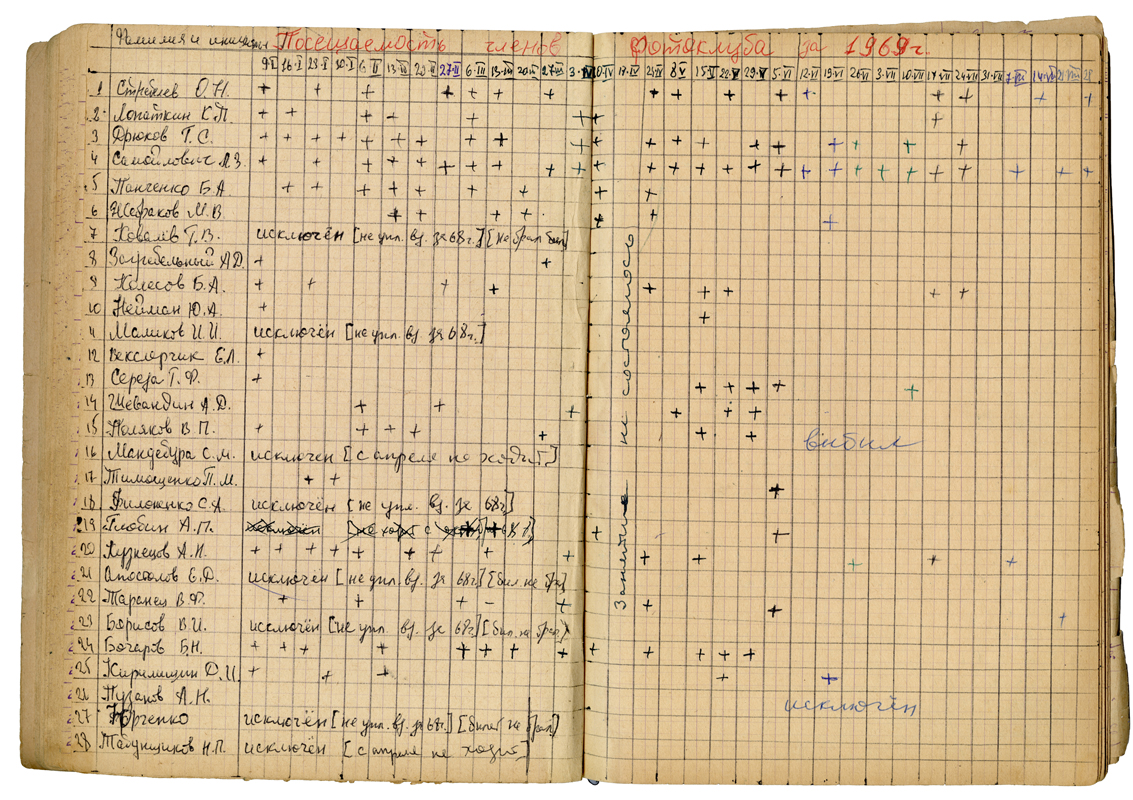 Фамилия и инициалы Посещаемость членов фотоклуба за 1969 г.
9·I 16·I 23·I 30·I 6·II 13·II 20·II 27·II 6·III 13·III 20·III 27·III 3·IV 10·IV 17·IV 24·IV 8·V 15·V 22·V 29·V 5·VI 12·VI 19·VI 26·VI 3·VII 10·VII 17·VII 24·VII 31·VII 7·VIII 14·VIII 21·VIII 28
1 О.Н.
2 Лопаткин К.П.
3 Дрюков Г.С.
4 Самойлович Л.З.
5 Панченко Б.А.
6 Жебраков М.В.
7 Ковалёв Г.В. исключён [не упл. вз. за 68 г.] [не брал бил]
8 Загребельный А.Д.
9 Колесов Б.А.
10 Нейман Ю.А.
11 Маликов И.И. исключён [не упл. вз. за 68 г.]
12 Векслерчик Е.Л.
13 Середа Г.Ф.
14 Шевандин А.Д.
15 Поляков В.П. выбыл
16 Мандебура С.М. исключен [с апреля не ходит]
17 Тимощенко П.М.
18 Филоненко С.А. исключён [не упл. вз. за 68 г]
19 Глобин А.П.
20 Кузнецов А.И.
21 Апостолов Е.Д. исключён [не упл. вз. за 68 г.] [бил. не брал]
22 Таранец В.Ф.
23 Борисов В.И. исключён [не упл. вз. за 68 г] [бил. не брал]
24 Бочаров Б.Н.
25 Кирилищин Д.И.
26 Пузанов А.Н. исключён
27 Юрченко исключён [не упл. вз. за 68 г.] [билет не брал]
28 Табунщиков Н.П. исключён [с апреля не ходит]
Занятие не состоялось